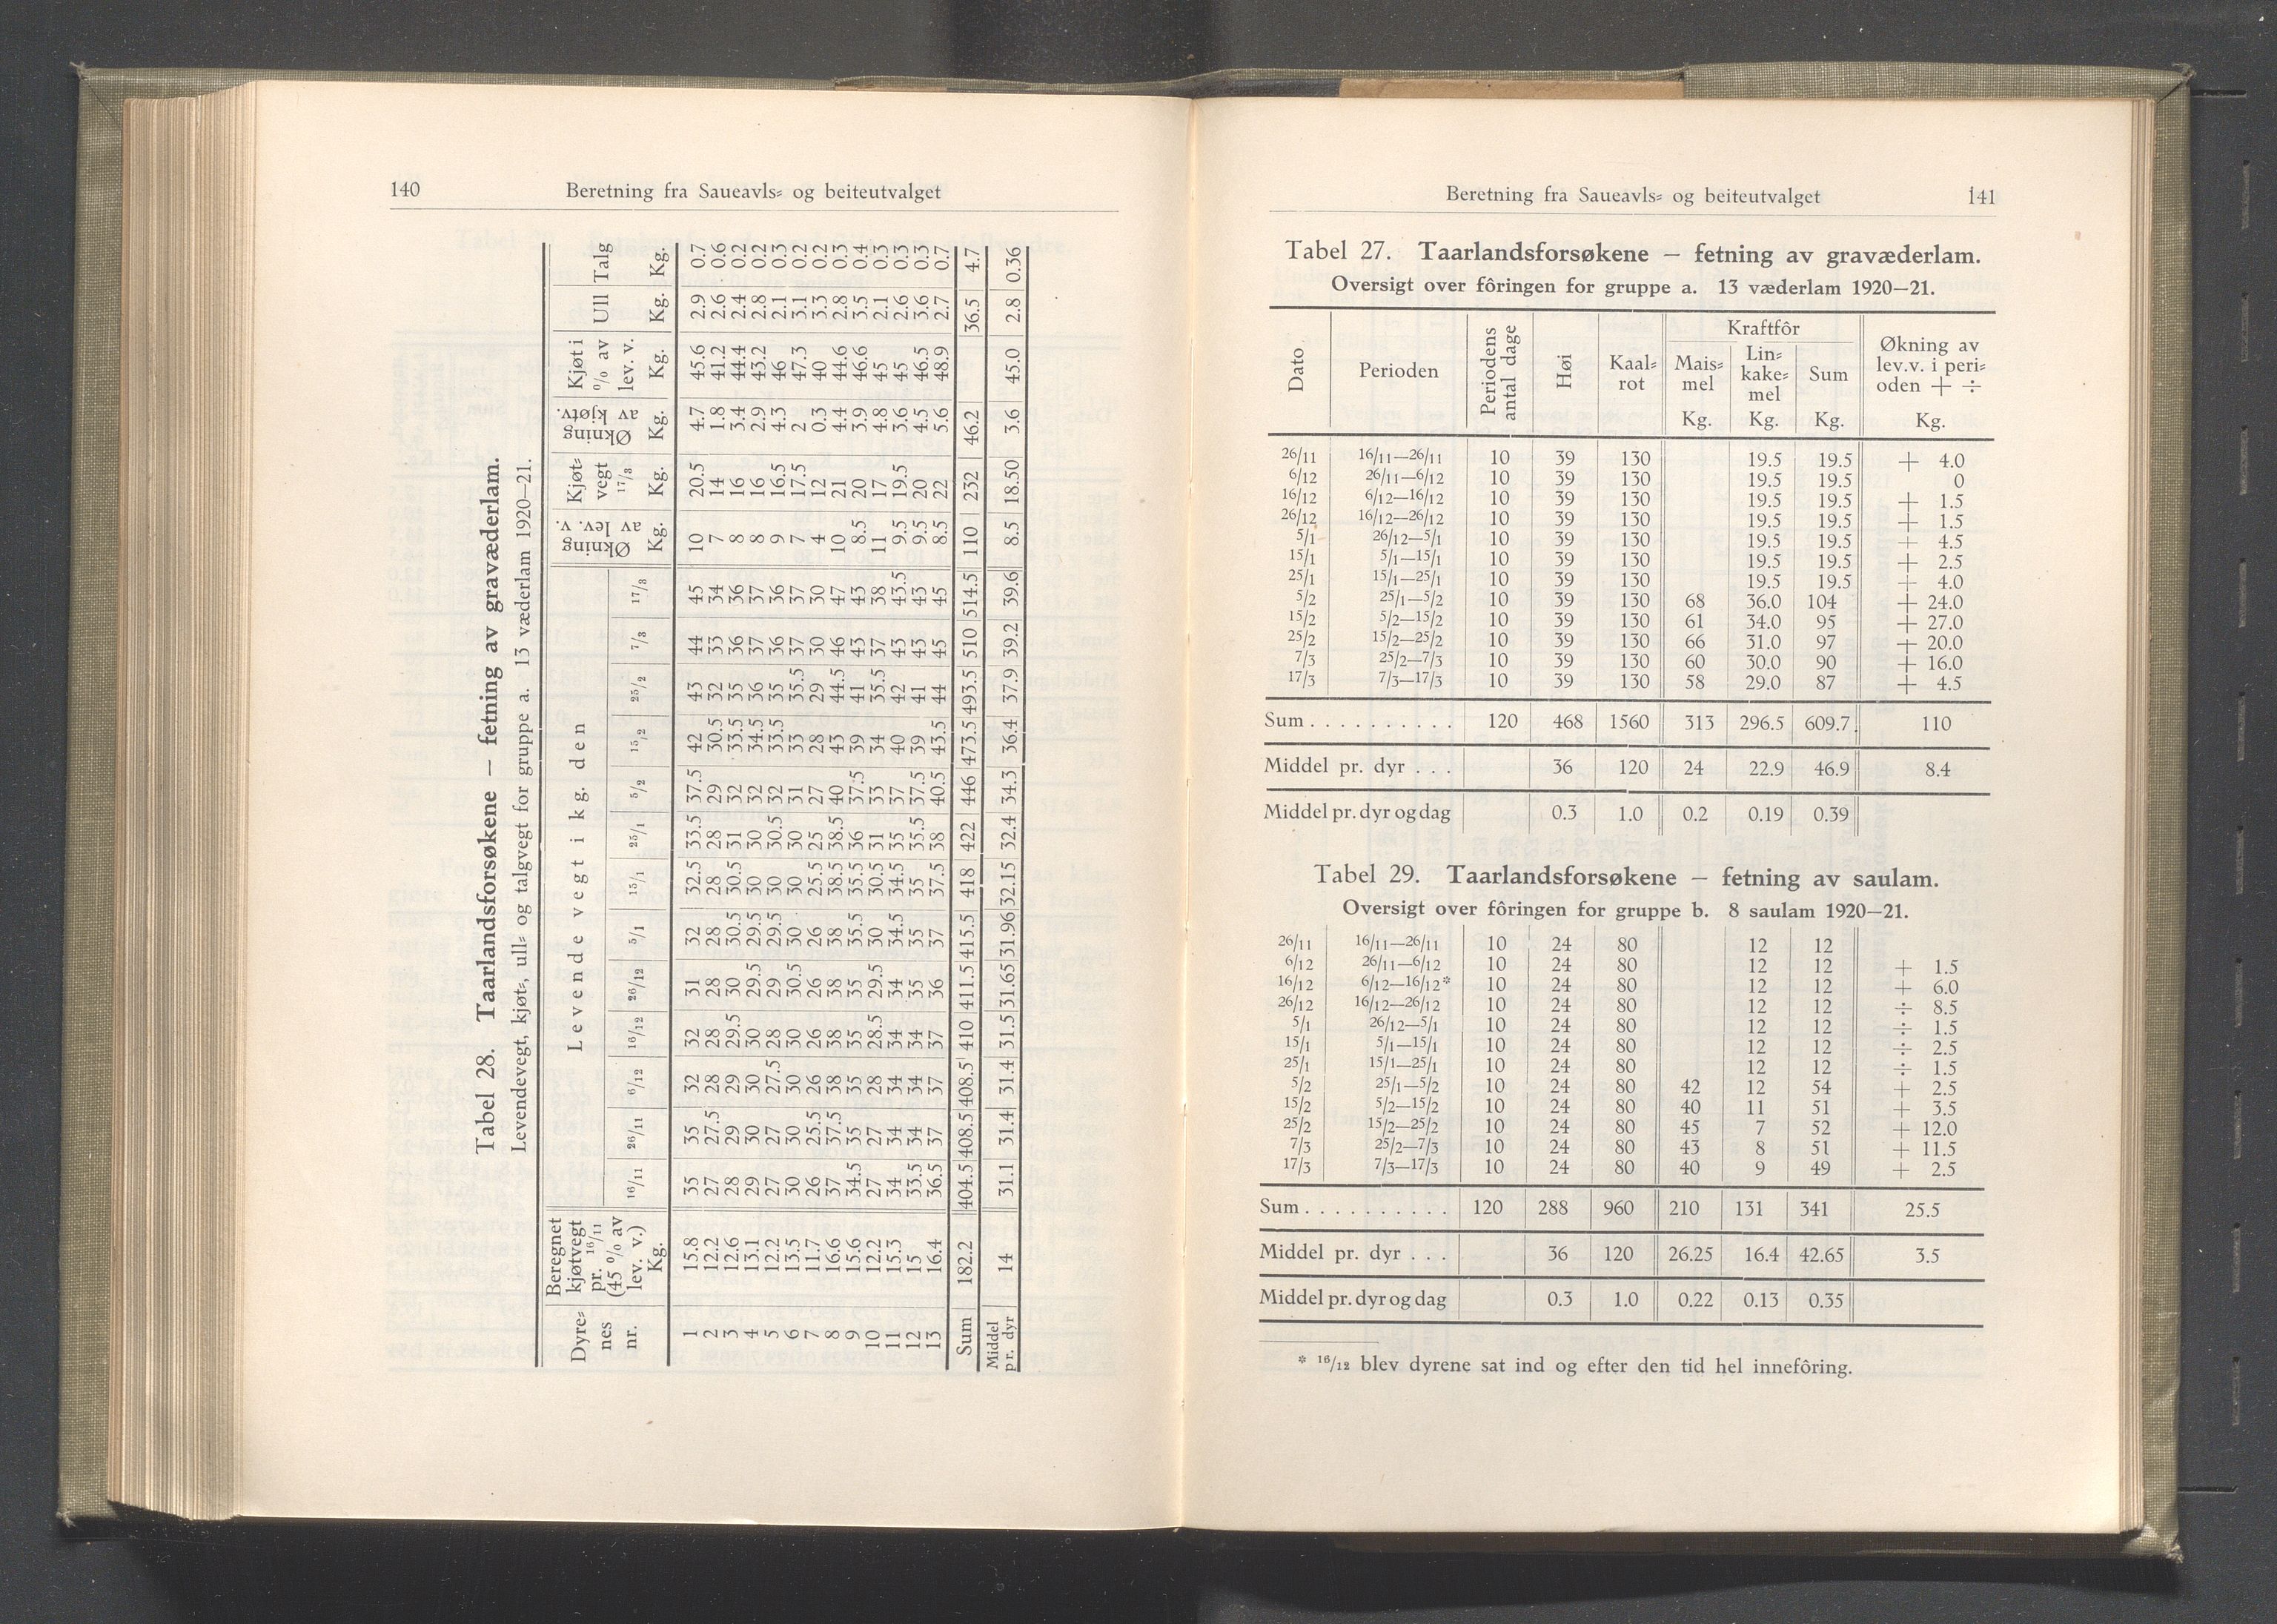 140 Beretning fra Saueavls= og beiteutvalget
Tabel 28. Taarlandsforsøkene — fetning av gravæderlam.
Levendevegt, kjøt=, ull= og talgvegt for gruppe a. 13 væderlam 1920—21.
Dyre= nes nr. | Beregnet kjøtvegt pr. 16/11 (45 % av lev. v.) Kg. | Levende vegt i kg. den | Økning av lev. v. Kg. | Kjøt= vegt 17/3 Kg. | Økning av kjøtv. Kg. | Kjøt i % av lev. v. Kg. | Ull Kg. | Talg Kg.
16/11 | 26/11 | 6/12 | 16/12 | 26/12 | 5/1 | 15/1 | 25/1 | 5/2 | 15/2 | 25/2 | 7/3 | 17/3
1 15.8 35 35 32 32 31 32 32.5 33.5 37.5 42 43 44 45 10 20.5 4.7 45.6 2.9 0.7
2 12.2 27 27.5 28 28 28 28 28 28 29 30.5 32 33 34 7 14 1.8 41.2 2.6 0.6
3 12.6 28 29 29 29.5 30 30.5 30.5 31 32 33.5 35 36 36 8 16 3.4 44.4 2.4 0.2
4 13.1 29 30 30 30 29.5 29.5 30 30 32 34.5 36 37 37 8 16 2.9 43.2 2.8 0.2
5 12.2 27 27 27.5 28 29 29.5 30 30.5 32 33.5 35 36 36 9 16.5 4.3 46 2.1 0.3
6 13.5 30 30 30 30 30.5 30 30 30 31 33 35.5 37 37 7 17.5 2 47.3 3.1 0.2
7 11.7 26 25.5 26 26 26 26 25.5 25 27 28 29 30 30 4 12 0.3 40 3.3 0.2
8 16.6 37 37.5 38 38 38 38 38.5 38.5 40 43 44.5 46 47 10 21 4.4 44.6 2.8 0.3
9 15.6 34.5 35 35 35 35 35.5 35.5 36 37.5 39 41 43 43 8.5 20 3.9 46.6 3.5 0.4
10 12.2 27 27 28 28.5 29.5 30 30.5 31 33 34 35.5 37 38 11 17 4.8 45 2.1 0.3
11 15.3 34 34 34 34 34 34.5 34.5 35 37 40 42 43 43.5 9.5 19.5 3.6 45 2.6 0.3
12 15 33.5 34 34 34 35 35 35 35.5 37.5 39 41 43 43 9.5 20 4.5 46.5 3.6 0.3
13 16.4 36.5 37 37 37 36 37 37.5 38 40.5 43.5 44 45 45 8.5 22 5.6 48.9 2.7 0.7
Sum 182.2 404.5 408.5 408.5 410 411.5 415.5 418 422 446 473.5 493.5 510 514.5 110 232 46.2 36.5 4.7
Middel pr. dyr 14 31.1 31.4 31.4 31.5 31.65 31.96 32.15 32.4 34.3 36.4 37.9 39.2 39.6 8.5 18.50 3.6 45.0 2.8 0.36
Beretning fra Saueavls= og beiteutvalget 141
Tabel 27. Taarlandsforsøkene — fetning av gravæderlam.
Oversigt over fôringen for gruppe a. 13 væderlam 1920—21.
Dato | Perioden | Periodens antal dage | Høi | Kaal= rot | Kraftfôr | Økning av lev.v. i peri= oden + ÷ Kg.
Mais= mel Kg. | Lin= kake= mel Kg. | Sum Kg.
26/11 16/11—26/11 10 39 130 19.5 19.5 + 4.0
6/12 26/11—6/12 10 39 130 19.5 19.5 0
16/12 6/12—16/12 10 39 130 19.5 19.5 + 1.5
26/12 16/12—26/12 10 39 130 19.5 19.5 + 1.5
5/1 26/12—5/1 10 39 130 19.5 19.5 + 4.5
15/1 5/1—15/1 10 39 130 19.5 19.5 + 2.5
25/1 15/1—25/1 10 39 130 19.5 19.5 + 4.0
5/2 25/1—5/2 10 39 130 68 36.0 104 + 24.0
15/2 5/2—15/2 10 39 130 61 34.0 95 + 27.0
25/2 15/2—25/2 10 39 130 66 31.0 97 + 20.0
7/3 25/2—7/3 10 39 130 60 30.0 90 + 16.0
17/3 7/3—17/3 10 39 130 58 29.0 87 + 4.5
Sum . . . . . . . . . . 120 468 1560 313 296.5 609.7 110
Middel pr. dyr . . . 36 120 24 22.9 46.9 8.4
Middel pr. dyr og dag 0.3 1.0 0.2 0.19 0.39
Tabel 29. Taarlandsforsøkene — fetning av saulam.
Oversigt over fôringen for gruppe b. 8 saulam 1920—21.
26/11 16/11—26/11 10 24 80 12 12
6/12 26/11—6/12 10 24 80 12 12 + 1.5
16/12 6/12—16/12* 10 24 80 12 12 + 6.0
26/12 16/12—26/12 10 24 80 12 12 ÷ 8.5
5/1 26/12—5/1 10 24 80 12 12 ÷ 1.5
15/1 5/1—15/1 10 24 80 12 12 ÷ 2.5
25/1 15/1—25/1 10 24 80 12 12 ÷ 1.5
5/2 25/1—5/2 10 24 80 42 12 54 + 2.5
15/2 5/2—15/2 10 24 80 40 11 51 + 3.5
25/2 15/2—25/2 10 24 80 45 7 52 + 12.0
7/3 25/2—7/3 10 24 80 43 8 51 + 11.5
17/3 7/3—17/3 10 24 80 40 9 49 + 2.5
Sum . . . . . . . . . . 120 288 960 210 131 341 25.5
Middel pr. dyr . . . 36 120 26.25 16.4 42.65 3.5
Middel pr. dyr og dag 0.3 1.0 0.22 0.13 0.35
* 16/12 blev dyrene sat ind og efter den tid hel innefôring.